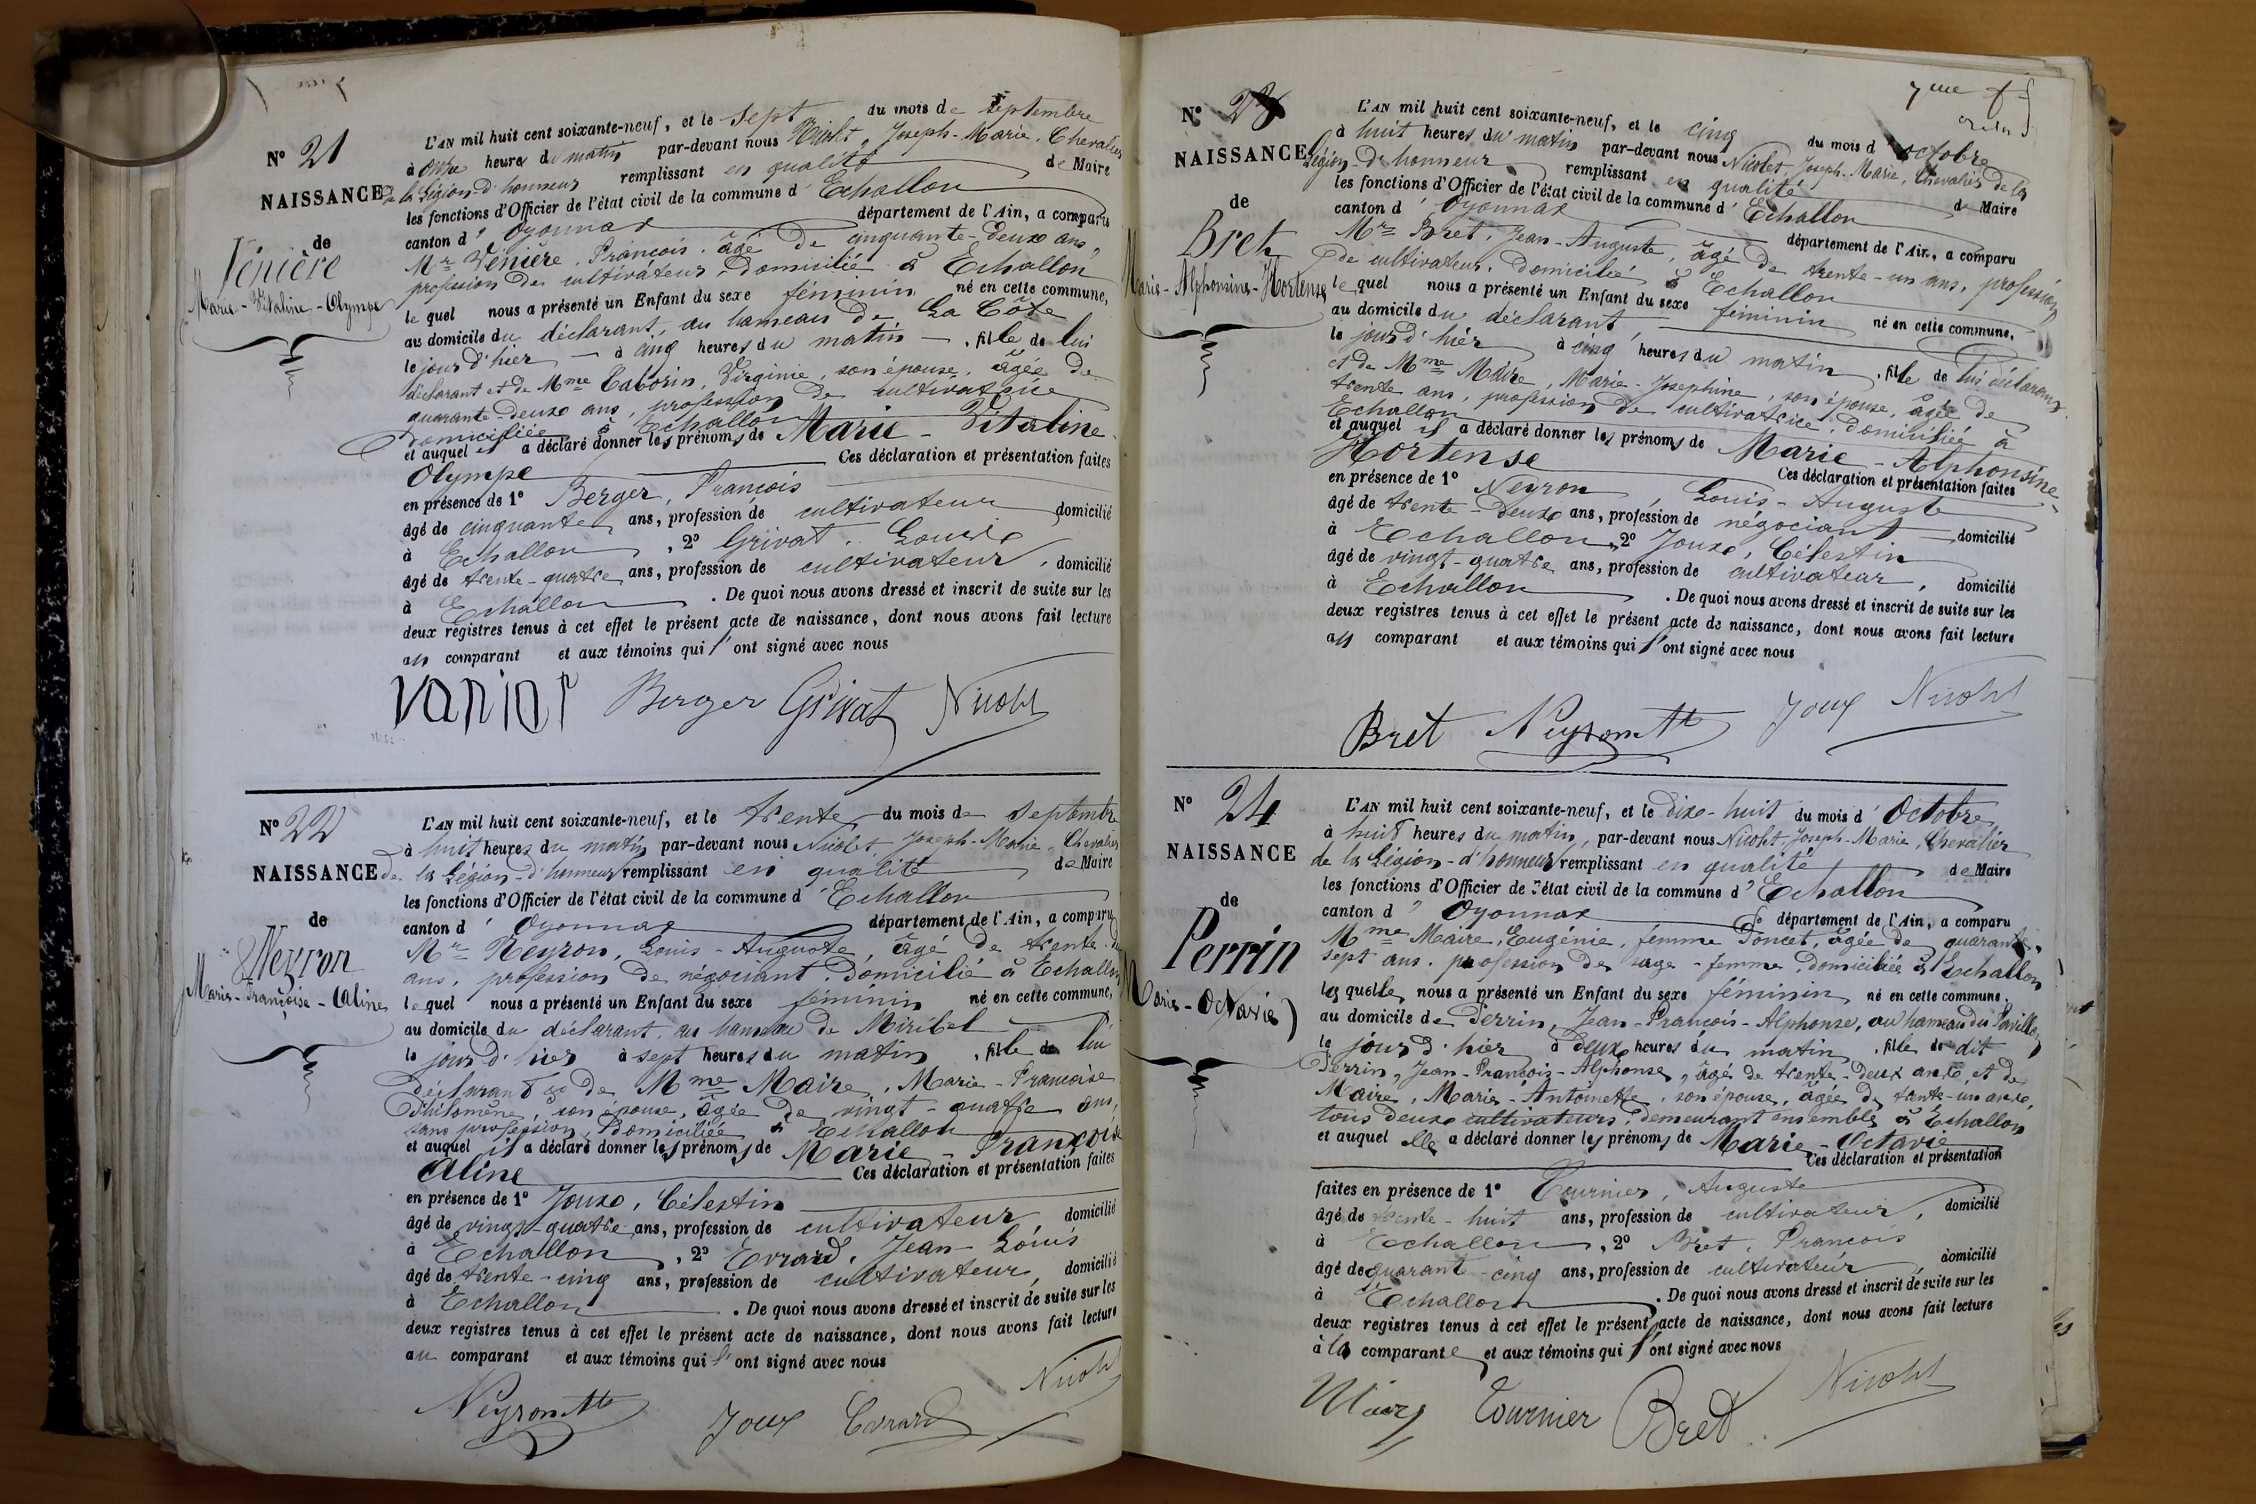 N° 21
NAISSANCE
de
Vénière
Marie-Vitaline-Olympe
L'AN mil huit cent soixante-neuf, et le sept du mois de septembre
à onze heures du matin par-devant nous Nicolet, Joseph-Marie, Chevalier
de la Légion d'honneur remplissant en qualité de Maire
les fonctions d'Officier de l'état civil de la commune d'Echallon
canton d'Oyonnax département de l'Ain, a comparu
Mr Vénière, François, âgé de cinquante-deux ans,
profession de cultivateur, domicilié à Echallon
le quel nous a présenté un Enfant du sexe féminin né en cette commune,
au domicile du déclarant, au hameau de La Côte
le jour d'hier à cinq heures du matin, fille de lui
déclarant et de Mme Taborin, Virginie, son épouse, âgée de
quarante-deux ans, profession de cultivatrice
domiciliée à Echallon
et auquel il a déclaré donner les prénoms de Marie-Vitaline
Olympe Ces déclaration et présentation faites
en présence de 1° Berger, François
âgé de cinquante ans, profession de cultivateur domicilié
à Echallon, 2° Grivat, Louis
âgé de trente-quatre ans, profession de cultivateur, domicilié
à Echallon. De quoi nous avons dressé et inscrit de suite sur les
deux registres tenus à cet effet le présent acte de naissance, dont nous avons fait lecture
au comparant et aux témoins qui l'ont signé avec nous
Berger Grivat Nicolet
N° 22
NAISSANCE
de
Neyron
Marie-Françoise-Aline
L'AN mil huit cent soixante-neuf, et le trente du mois de septembre
à huit heures du matin par-devant nous Nicolet Joseph-Marie, Chevalier
de la Légion-d'honneur remplissant en qualité de Maire
les fonctions d'Officier de l'état civil de la commune d'Echallon
canton d'Oyonnax département de l'Ain, a comparu
Mr Neyron, Louis-Auguste, âgé de trente-
ans, profession de négociant domicilié à Echallon
le quel nous a présenté un Enfant du sexe féminin né en cette commune,
au domicile du déclarant, au hameau de Miribel
le jour d'hier à sept heures du matin, fille de lui
déclarant et de Mme Maire, Marie-Françoise
Philomène, son épouse, âgée de vingt-quatre ans,
sans profession, domiciliée à Echallon
et auquel il a déclaré donner les prénoms de Marie-Françoise
Aline Ces déclaration et présentation faites
en présence de 1° Joux, Célestin
âgé de vingt-quatre ans, profession de cultivateur, domicilié
à Echallon, 2° Evrard, Jean-Louis
âgé de trente-cinq ans, profession de cultivateur, domicilié
à Echallon. De quoi nous avons dressé et inscrit de suite sur les
deux registres tenus à cet effet le présent acte de naissance, dont nous avons fait lecture
au comparant et aux témoins qui l'ont signé avec nous
Neyron Joux Evrard Nicolet
7me
N° 23
NAISSANCE
de
Bret
Marie-Alphonsine-Hortense
L'AN mil huit cent soixante-neuf, et le cinq du mois d'octobre
à huit heures du matin par-devant nous Nicolet, Joseph-Marie, Chevalier de la
Légion-d'honneur remplissant en qualité de Maire
les fonctions d'Officier de l'état civil de la commune d'Echallon
canton d'Oyonnax département de l'Ain, a comparu
Mr Bret, Jean-Auguste, âgé de trente-un ans, profession
de cultivateur, domicilié à Echallon
le quel nous a présenté un Enfant du sexe féminin né en cette commune,
au domicile du déclarant
le jour d'hier à cinq heures du matin, fille de lui déclarant
et de Mme Maire, Marie-Josephine, son épouse, âgée de
trente ans, profession de cultivatrice, domiciliée à
Echallon
et auquel il a déclaré donner les prénoms de Marie-Alphonsine
Hortense Ces déclaration et présentation faites
en présence de 1° Neyron Louis-Auguste
âgé de trente-deux ans, profession de négociant domicilié
à Echallon, 2° Joux, Célestin
âgé de vingt-quatre ans, profession de cultivateur, domicilié
à Echallon. De quoi nous avons dressé et inscrit de suite sur les
deux registres tenus à cet effet le présent acte de naissance, dont nous avons fait lecture
au comparant et aux témoins qui l'ont signé avec nous
Bret Neyron Joux Nicolet
N° 24
NAISSANCE
de
Perrin
Marie-Octavie
L'AN mil huit cent soixante-neuf, et le dix-huit du mois d'Octobre
à huit heures du matin, par-devant nous Nicolet Joseph-Marie, Chevalier
de la Légion-d'honneur remplissant en qualité de Maire
les fonctions d'Officier de l'état civil de la commune d'Echallon
canton d'Oyonnax département de l'Ain, a comparu
Mme Maire, Eugénie, femme Poncet, âgée de quarante-
sept ans, profession de sage-femme, domiciliée à Echallon
la quelle nous a présenté un Enfant du sexe féminin né en cette commune,
au domicile de Perrin, Jean-François-Alphonse, au hameau du
le jour d'hier à deux heures du matin, fille de dit
Perrin, Jean-François-Alphonse, âgé de trente-deux ans, et de
Maire, Marie-Antoinette, son épouse, âgée de trente-un ans,
tous deux cultivateurs, demeurant ensemble à Echallon
et auquel elle a déclaré donner les prénoms de Marie-Octavie
Ces déclaration et présentation
faites en présence de 1° Tournier, Auguste
âgé de trente-huit ans, profession de cultivateur, domicilié
à Echallon, 2° Bret, François
âgé de quarante-cinq ans, profession de cultivateur domicilié
à Echallon. De quoi nous avons dressé et inscrit de suite sur les
deux registres tenus à cet effet le présent acte de naissance, dont nous avons fait lecture
à la comparante et aux témoins qui l'ont signé avec nous
Maire Tournier Bret Nicolet